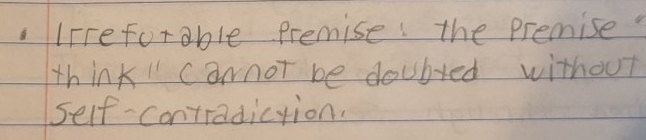 • Irrefutable Premise: the Premise "
think" cannot be doubted without
Self-contradiction.